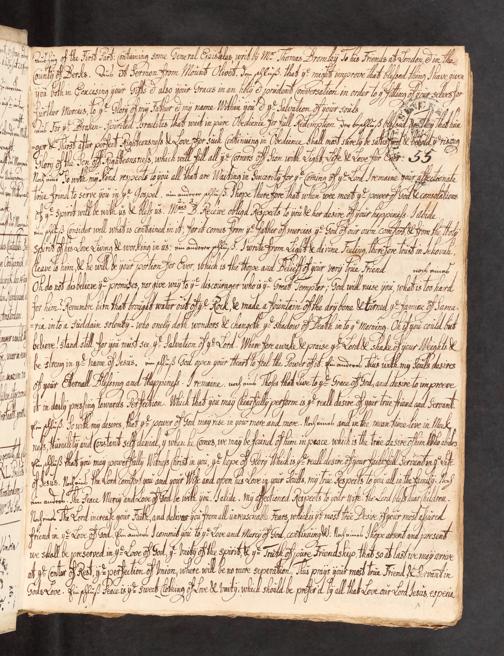 of the First Part: containing some General Epistles, writ by Mr. Thomas Bromley To his Friends at London, & in the
County of Berks. A Sermon from Mount Olivet. that ye might improve that blessed thing I have given
you both in Exercising your Gifts & also your Graces in an holy & constant conversation in order to ye filling of your selves for
further Mercies, to ye Glory of my Father & my name Within you & ye Salvation of your souls
for ye Broken-spirited Israelites that wait in pure Obedience for full Redemption
ger & thirst after perfect Righteousness & Love for such continuing in Obedience shall most surely be satisfied & behold ye rising
Glory of the Sun of Righteousness, which will fill all ye corners of Sion with Light, Life & Love for Ever. 55
To with my kind respects to you all that are Waiting in Sincerity for ye coming of ye Lord, I remaine your affectionate
true friend to serve you in ye Gospel. I hope therefore that when wee meet ye power of God & consolations
of ye spirit will be with us & bless us. Mrs B. Receive obliged Respects to you & her desire of your happiness I abide
consider well what is contained in it, for it comes from ye father of mercies ye God of our own Comfort & from the Holy
Spirit of his Love Living & working in us: I write from Light & divine Feeling therefore trust in Jehovah.
Cleave to him, & he will be your portion for Ever, which is the hope and Beliefe of your very true Friend
Oh do not believe ye promises, nor give way to ye discourager who is ye Great Tempter; God will raise you, what is too hard
for him? Remember him that brought water out of ye Rock, & made a fountain of the dry bone & turned ye famine of Sama-
ria, into a suddaine serenity. who onely doth wonders & changeth ye shadow of Death into ye Morning. Oh if you could but
believe! stand still for you must see ye Salvation of ye Lord. Wherefore awake & praise ye Lord & shake of your Weights &
be strong in ye name of Jesus. God open your heart to feel the Power of it. Thus with my Souls desires
of your Eternall Blessing and Happiness I remaine. Those that Live to ye Grace of God, and desire to improve
it in daily pressing towards Perfection. Which that you may Chearfully perform is ye reall desire of your true friend and Servant
To with my desires, that ye power of God may rise in your more and more. and in the mean time live in Meek-
ness, Humility and Constant self deniall, yt when he Comes, we may be found of him in peace which is the true desire of him Who abides
that you may powerfully Witness Christ in you, ye hope of Glory Which is ye reall desire of your faithfull Servant in ye Life
of Jesus. the Lord comfort you and your Wife and open his Love in your Souls, my true Respects to you all in the family.
The Grace Mercy and Love of God be with you. I abide, my affectioned Respects to your wife the Lord bless our children.
The Lord increase your Faith, and deliver you from all unreasonable Fears, which is ye most true Desire of your most assured
friend in ye Love of God. I commit you to ye Love and Mercy of God, continuing &c. I hope absent and present
we shall be preserved in ye Love of God, ye Unity of the spirit & ye Truth of pure Friendship that so at last we may arrive
at ye Center of Rest, ye perfection of Union, where will be no more seperation. Thus prays your most true Friend & Servant in
Gods Love. Peace is ye sweet Clothing of Love & Unity, which should be prefer'd by all that Love our Lord Jesus, especia